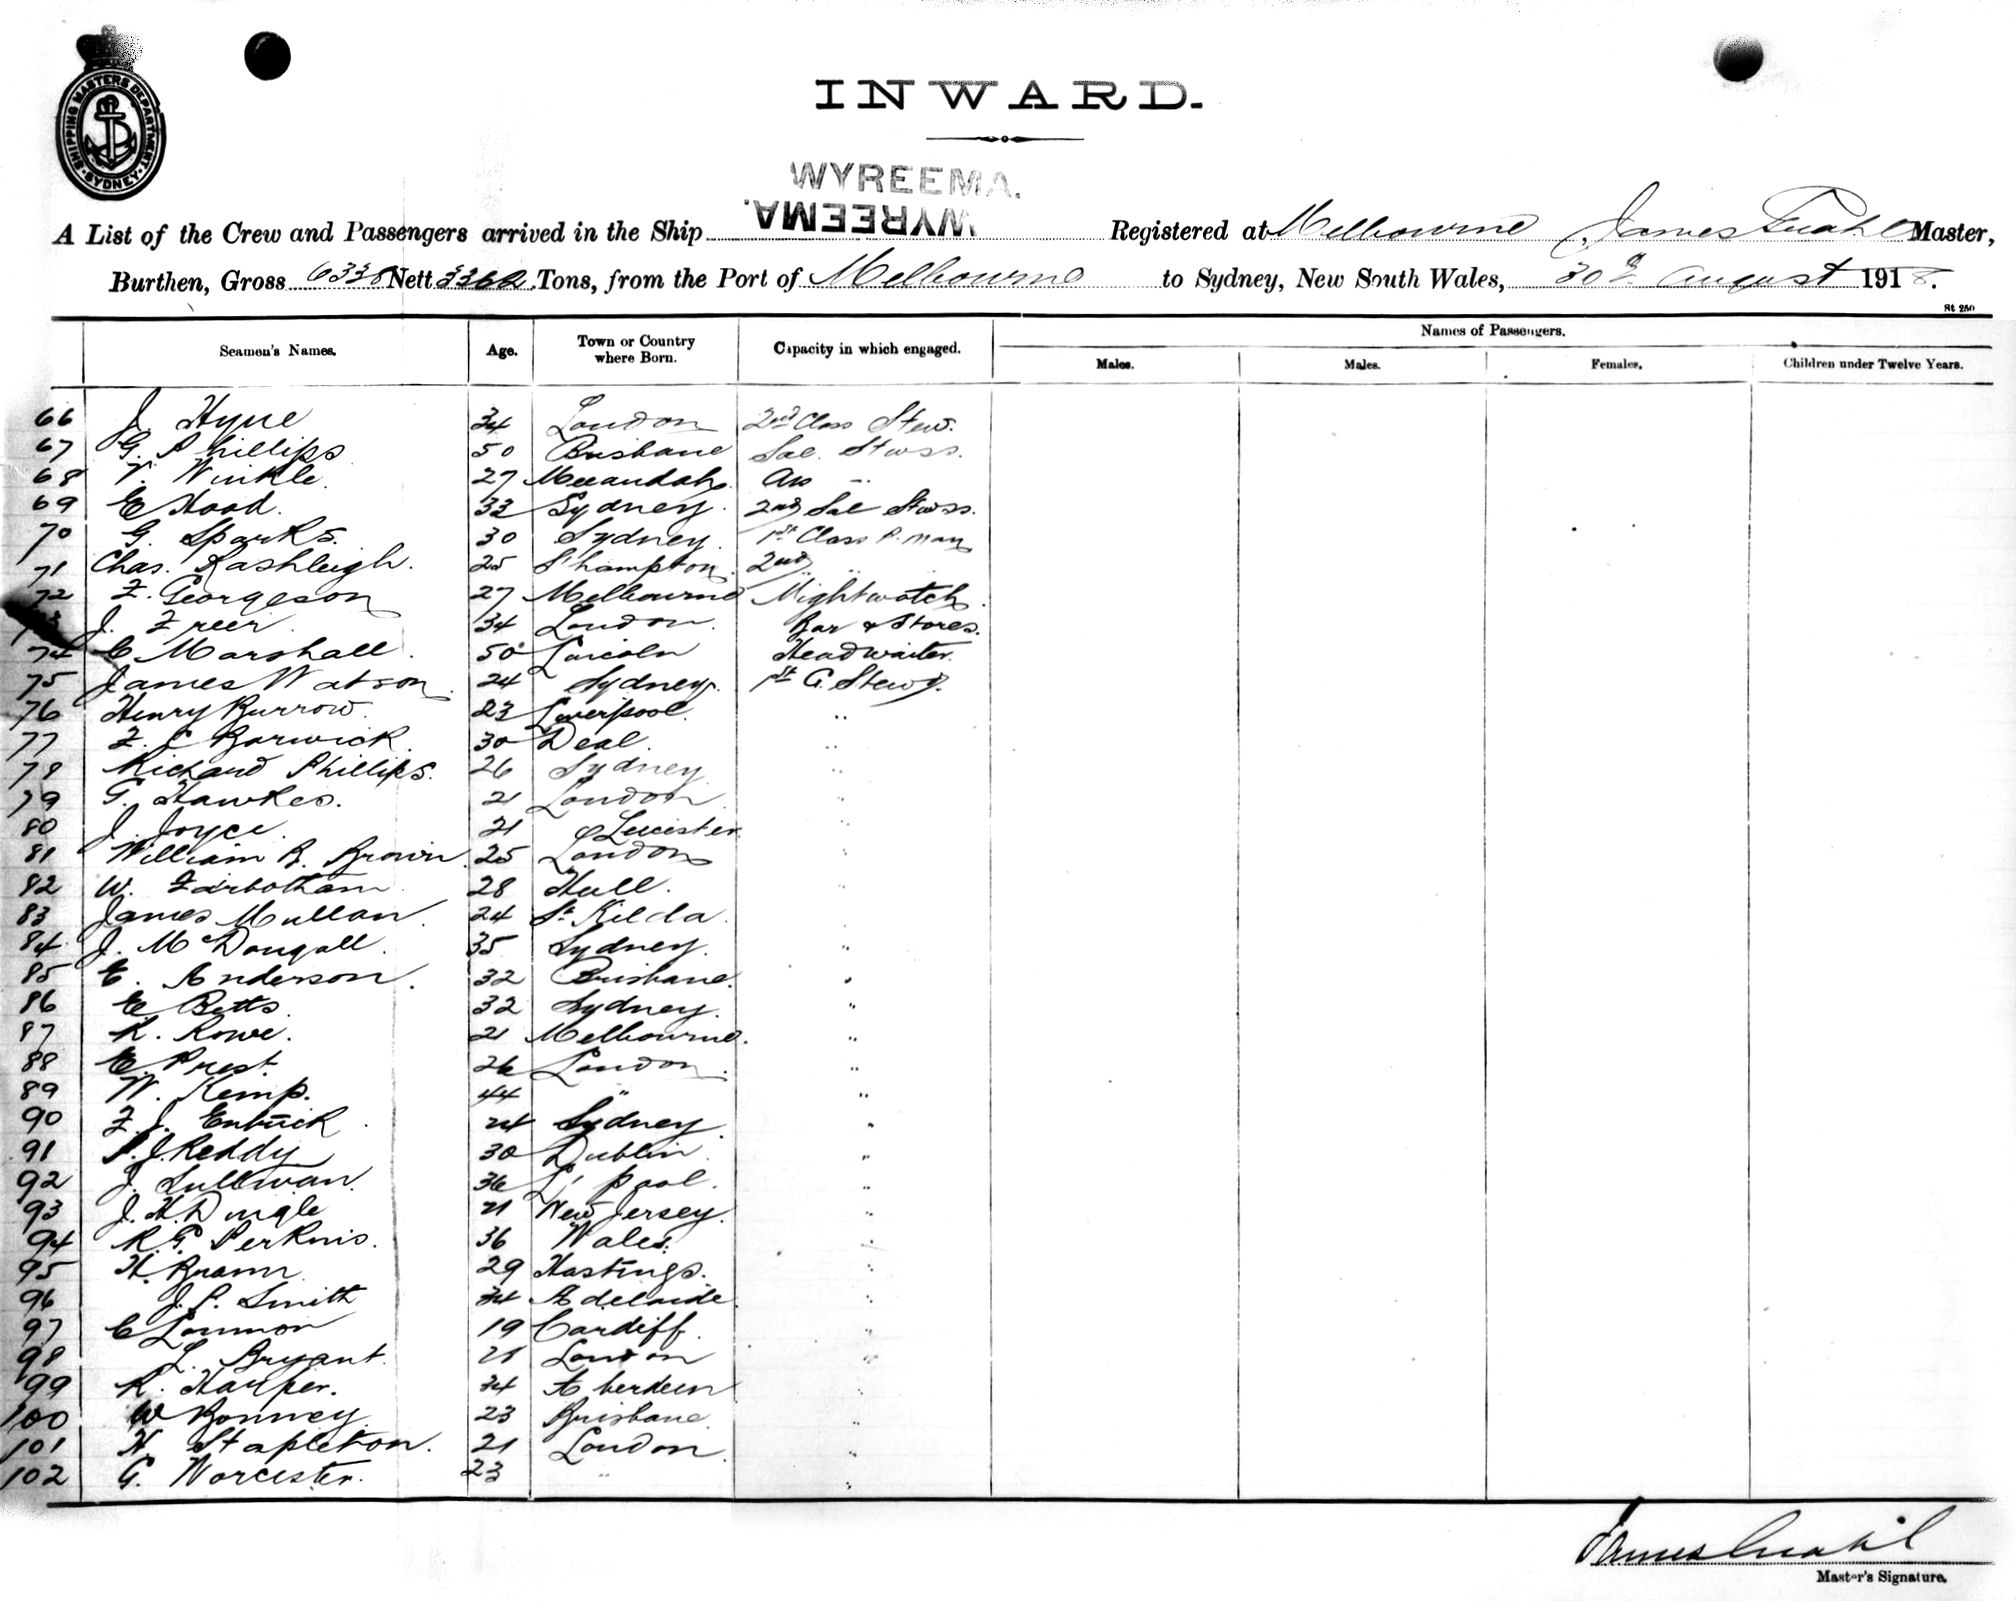 SHIPPING MASTERS DEPARTMENT
SYDNEY
INWARD.
WYREEMA.
WYREEMA.
A List of the Crew and Passengers arrived in the Ship Registered at Melbourne, James Master,
Burthen, Gross 6338 Nett 3362 Tons, from the Port of Melbourne to Sydney, New South Wales, 30th August 1918.
St 250
Seamen's Names. Age. Town or Country where Born. Capacity in which engaged. Names of Passengers.
Males. Males. Females. Children under Twelve Years.
66 J. Hyne 34 London 2nd Class Stew.
67 G. Phillips 50 Brisbane Sal. Stwss.
68 V. Winkle 27 "
69 E Hood. 33 Sydney. 2nd Sal Stwss.
70 G. Sparks. 30 Sydney. 1st Class P. man
71 Chas. Rashleigh. 25 S'hampton. 2nd " "
72 F. Georgeson 27 Melbourne Nightwatch.
73 J. Freer. 34 London. Bar & Stores.
74 C. Marshall. 50 Lincoln Headwaiter.
75 James Watson. 24 Sydney. 1st G. Stewd.
76 Henry Burrow. 23 Liverpool. "
77 F. C Barwick. 30 Deal. "
78 Richard Phillips. 26 Sydney "
79 G. Hawkes. 21 London "
80 J. Joyce. 21 Leicester. "
81 William R. Brown. 25 London "
82 W. Fairbotham 28 Hull. "
83 James Mullan. 24 St. Kilda "
84 J. McDougall. 35 Sydney. "
85 E. Anderson. 32 Brisbane. "
86 E Betts. 32 Sydney. "
87 R. Rowe. 21 Melbourne. "
88 E. Prest. 26 London. "
89 W. Kemp. 44 " "
90 F. J. 24 Sydney. "
91 P. J. Reddy 30 Dublin. "
92 J. Sullivan. 36 L'pool. "
93 J. H. Dingle 21 New Jersey. "
94 R. G. Perkins. 36 Wales. "
95 H. 29 Hastings. "
96 J. P. Smith 34 Adelaide. "
97 C 19 Cardiff. "
98 L. Bryant. 21 London "
99 R. Harper. 34 Aberdeen "
100 W Bonney. 23 Brisbane. "
101 H. Stapleton. 21 London. "
102 G. Worcester. 23 " "
Master's Signature.